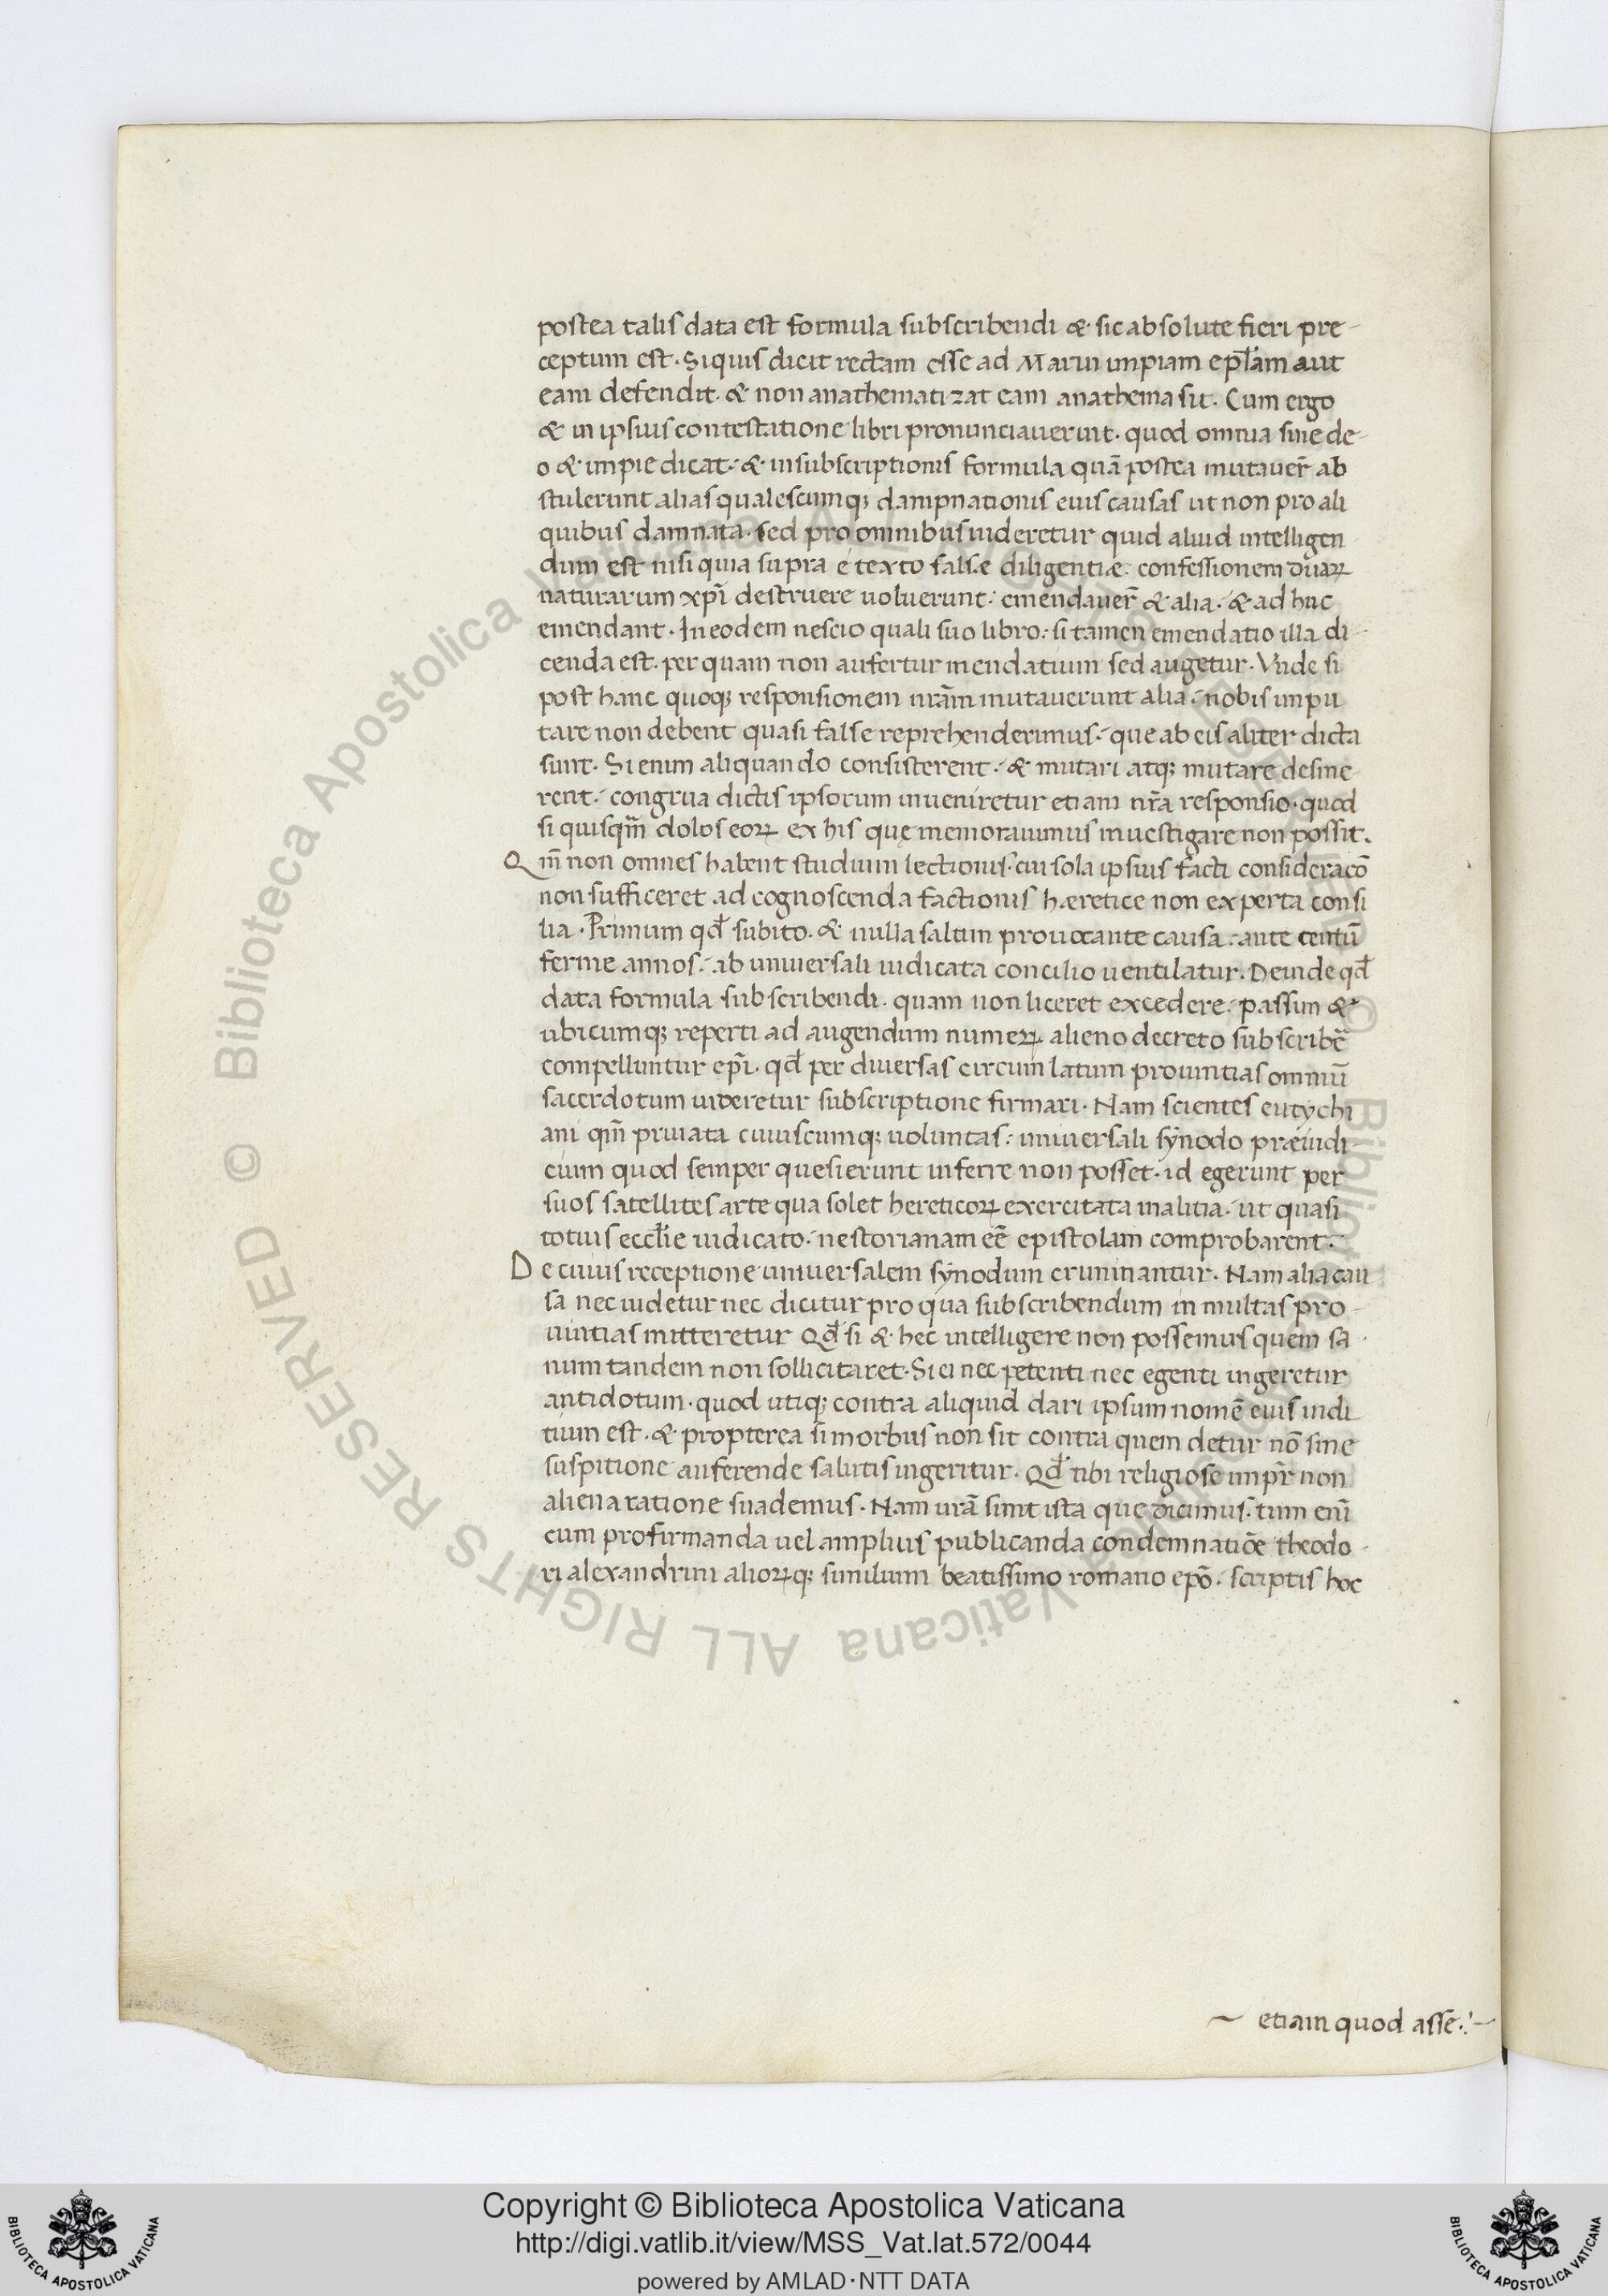 postea talis data est formula subscribendi & sic absolute fieri pre-
ceptum est. Siquis dicit rectam esse ad Marin impiam epl̄am aut
eam defendit. & non anathematizat eam anathema sit. Cum ergo
& in ipsius contestatione libri pronunciaverint. quod omnia sine de-
o & impie dicat. & in subscriptionis formula quā postea mutaver̄ ab
stulerunt alias qualescumq; dampnationis eius causas ut non pro ali
quibus damnata. sed pro omnibus videretur quid aliud intelligen
dum est nisi quia supra e texto false diligentiæ. confessionem duaꝝ
naturarum xp̄i destruere voluerunt. emendaver̄ & alia. & ad huc
emendant. In eodem nescio quali suo libro. si tamen emendatio illa di-
cenda est. per quam non aufertur mendatium sed augetur. Vnde si
post hanc quoq; responsionem nr̄am mutaverunt alia. nobis impu
tare non debent quasi false reprehenderimus. que ab eis aliter dicta
sunt. Si enim aliquando consisterent. & mutari atq; mutare desine-
rent. congrua dictis ipsorum inveniretur etiam nr̄a responsio. quod
si quisqm̄ dolos eoꝝ ex his quę memoravimus investigare non possit.
Qm̄ non omnes habent studium lectionis. cui sola ipsius facti consideracō
non sufficeret ad cognoscenda factionis hæretice non experta consi
lia. Primum qđ subito. & nulla saltim provocante causa. ante centū
ferme annos. ab universali iudicata concilio ventilatur. Deinde qđ
data formula subscribendi. quam non liceret excedere. passim &
ubicumq; reperti ad augendum numeꝝ. alieno decreto subscribē
compelluntur ep̄i. qđ per diversas circumlatum provintias omniū
sacerdotum videretur subscriptione firmari. Nam scientes eutychi
ani qm̄ privata cuiuscumq; voluntas. universali synodo præiudi-
cium quod semper quesierunt inferre non posset. id egerunt per
suos satellites arte qua solet hereticoꝝ exercitata malitia. ut quasi
totius eccl̄ie iudicato. nestorianam eē epistolam comprobarent.
De cuius receptione universalem synodum criminantur. Nam alia cau
sa nec videtur nec dicitur pro qua subscribendum in multas pro-
vintias mitteretur Qđ si & hec intelligere non possemus quem sa-
num tandem non sollicitaret. Si ei nec petenti nec egenti ingeretur
antidotum. quod utiq; contra aliquid dari ipsum nomē eius indi
tium est. & propterea si morbus non sit contra quem detur nō sine
suspitione auferende salutis ingeritur. Qđ tibi religiose imp̄r non
aliena ratione suademus. Nam vrā sunt ista que dicimus. tum enī
cum pro firmanda vel amplius publicanda condemnatiōe theodo-
ri alexandrini alioꝝq; similium beatissimo romano ep̄o. scriptis hoc
~ etiam quod asse.
Copyright © Biblioteca Apostolica Vaticana
http://digi.vatlib.it/view/MSS_Vat.lat.572/0044
powered by AMLAD·NTT DATA